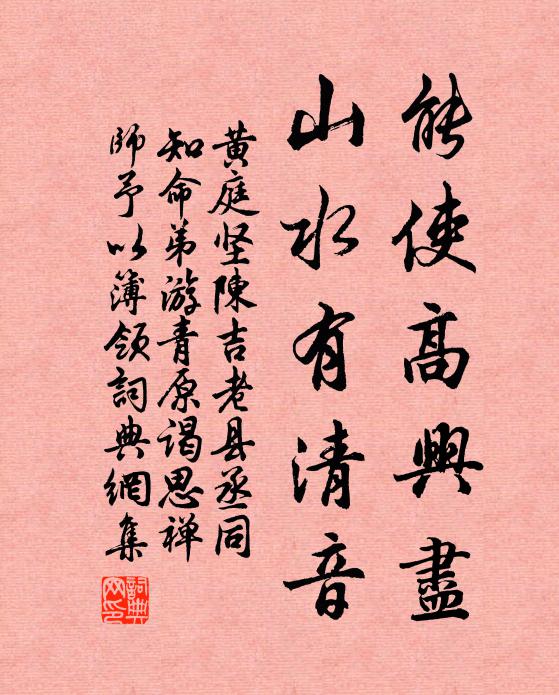 能使高興盡
山水有清音
黄庭坚陳吉老县丞同
知命弟游青原谒思禅
師予以簿領詞典網集
詞典网印